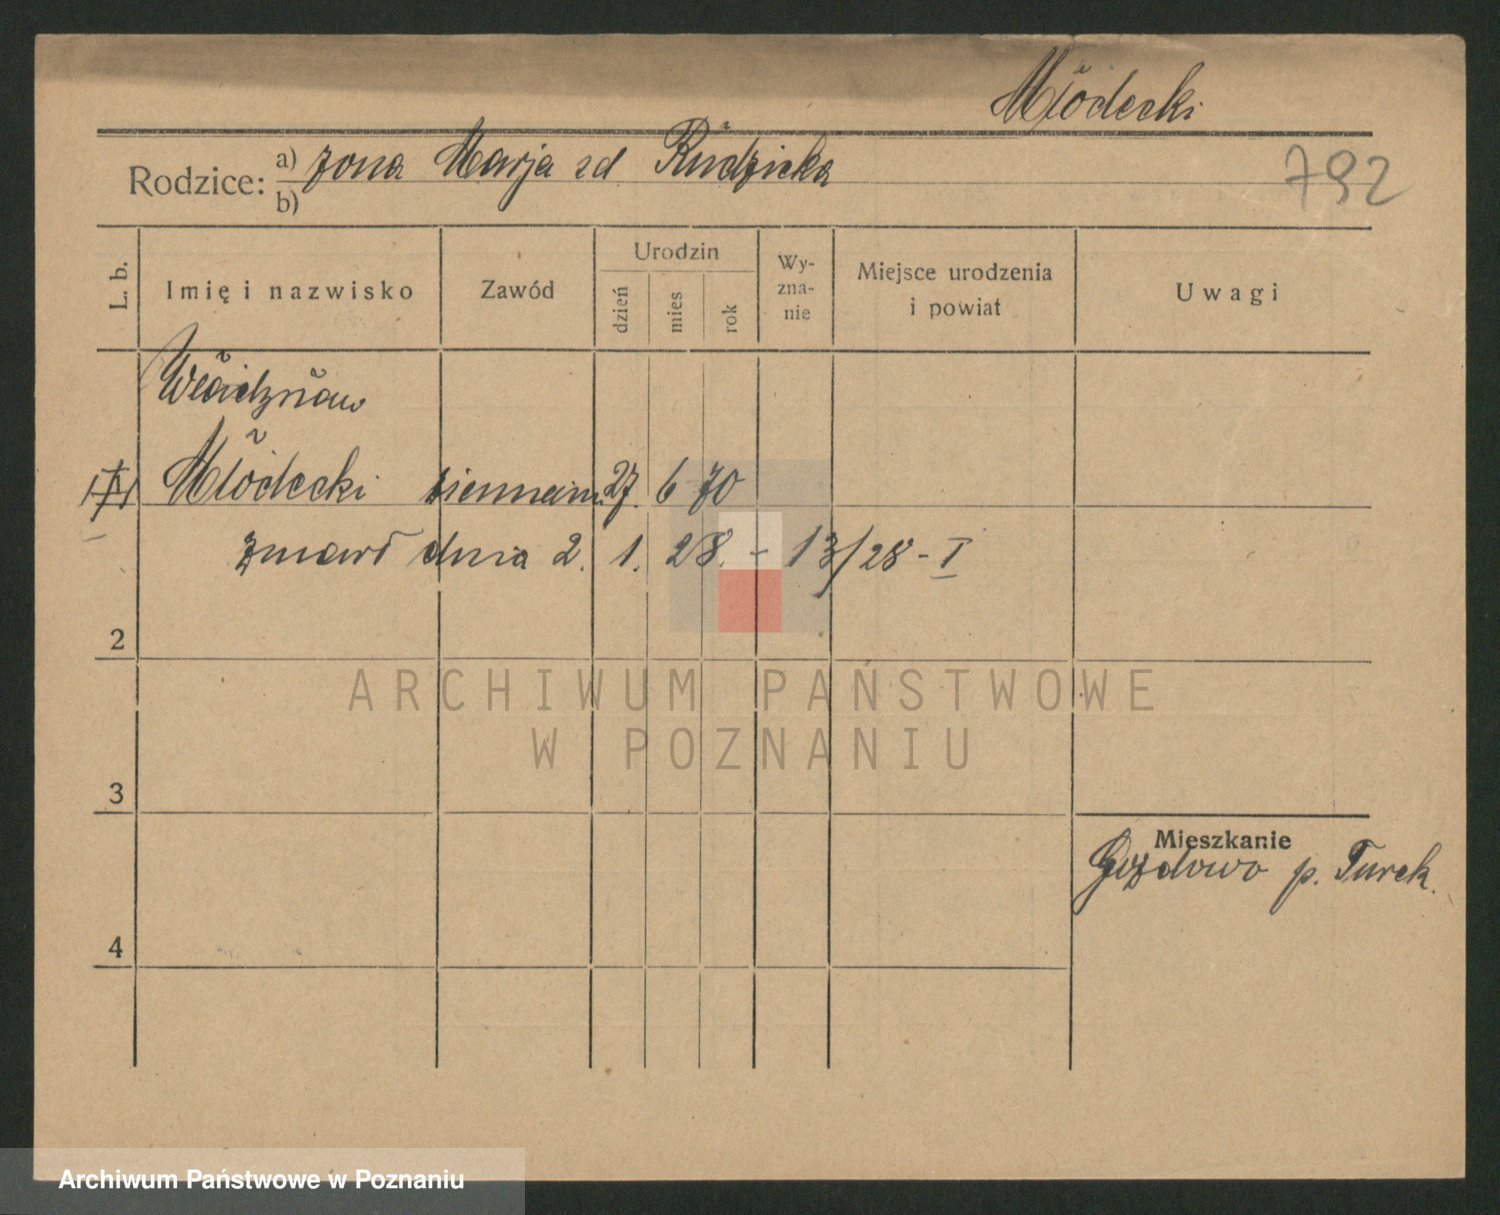 Młodecki
Rodzice: a) żona Marja zd Rudzicka
b)
792
L. b.
Imię i nazwisko
Zawód
Urodzin
dzień
mies
rok
Wy-
zna-
nie
Miejsce urodzenia
i powiat
Uwagi
Młodecki 27. 6 70
zmarł dnia 2. 1. 28. - 13/28 - I
2
3
4
Mieszkanie
Gozdowo p. Turek.
ARCHIWUM PAŃSTWOWE
W POZNANIU
Archiwum Państwowe w Poznaniu